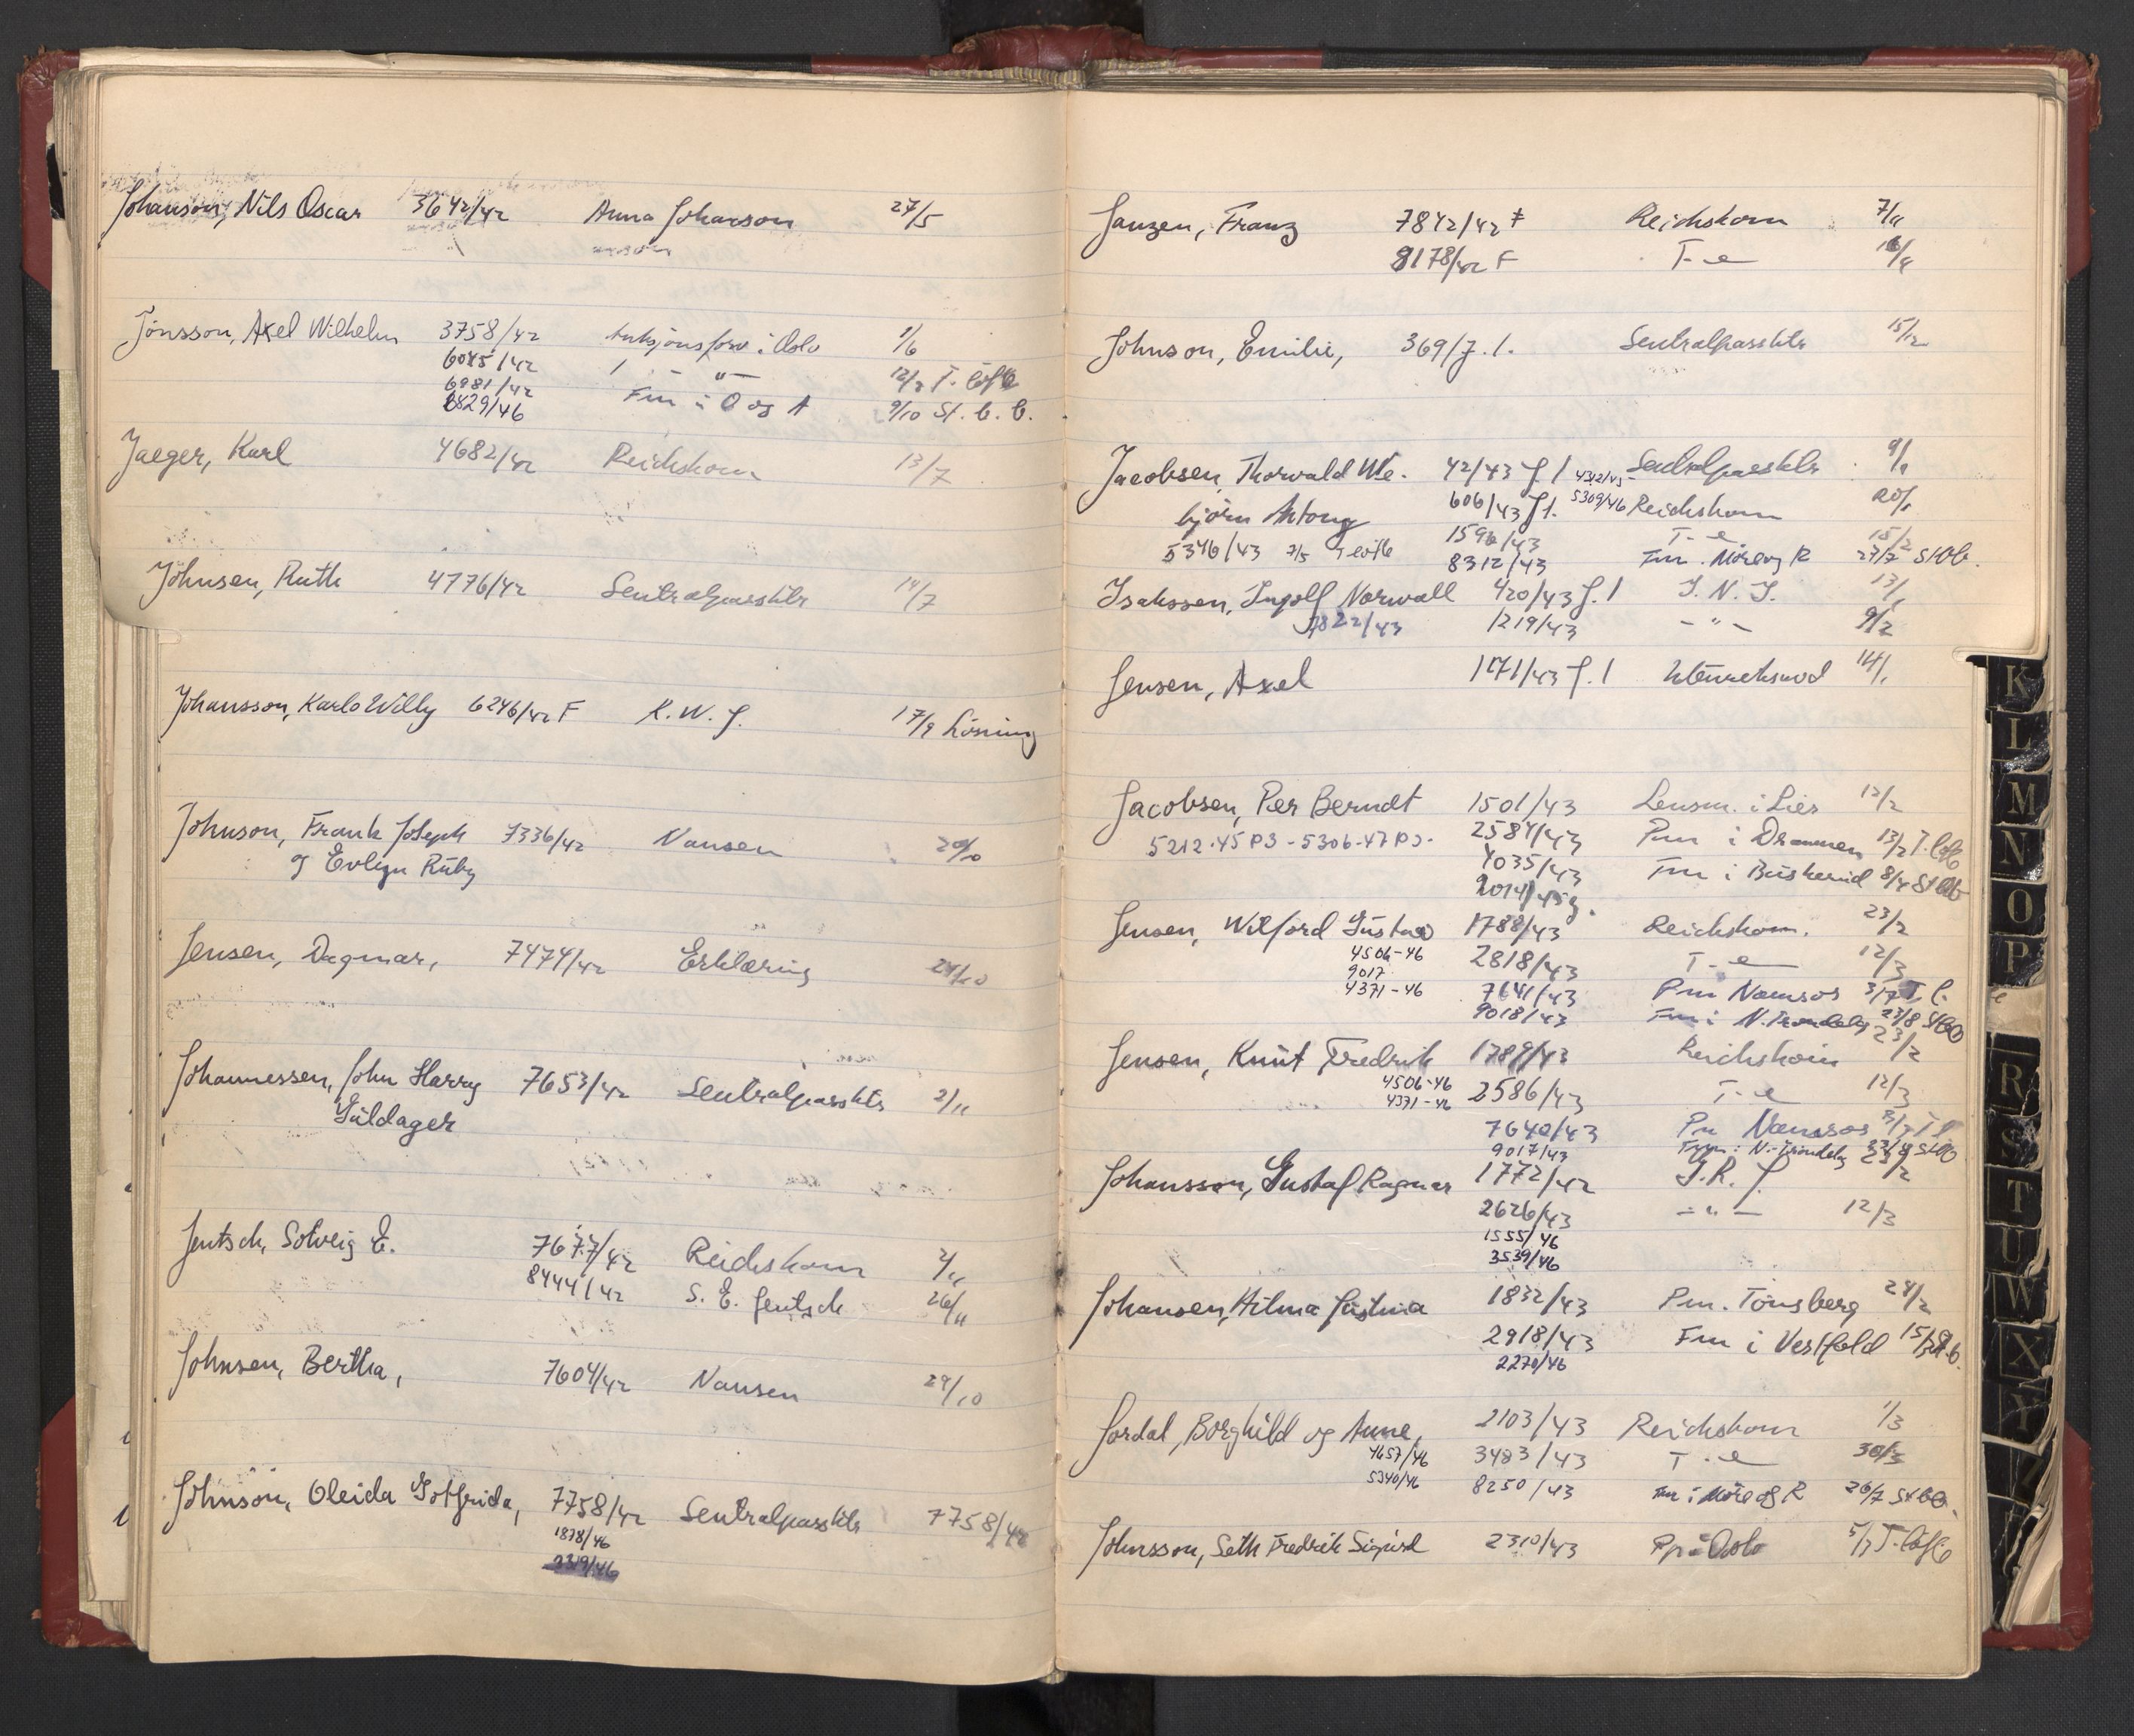 Johanson, Nils Oscar 3642/42 Anna Johanson 27/5
Jönsson, Axel Wilhelm 3758/42 i Oslo 1/6
6045/42 — " —
6981/42 Fm i O og A 12/9
6829/46 9/10 St. b. b.
Jaeger, Karl 4682/42 Reichskom 13/7
Johnsen, Ruth 4776/42 Sentralpassktr 14/7
Johansson, Karlo Willy 6246/42 F K. W. J. 17/9 Lösning
Johnson, Frank Joseph 7336/42 Nansen 20/10
og Evlyn Ruby
Jensen, Dagmar, 7474/42 Erklæring 24/10
Johannessen, John Harry 7653/42 Sentralpassktr 2/11
Güldager
Jentsch, Solveig E. 7677/42 Reichskom 2/11
8444/42 S. E. Jentsch 26/11
Johnsen, Bertha, 7604/42 Nansen 29/10
Johnson, Oleida Gotfrida, 7758/42 Sentralpassktr 7758/42
1878/46
2319/46
Janzen, Franz 7842/42 F Reichskom 7/11
8178/42 F T-e 16/11
Johnson, Emilie, 369/J.1. Sentralpassktr 15/12
Jacobsen, Thorwald We- 42/43 J.1 4312/45 Sentralpassktr 9/1
björn Antony 606/43 J1. 5309/46 Reichskom 20/1
5346/43 7/5 T 1596/43 T-e 15/2
8312/43 Fm. Möre og R 27/7 St Ob.
Isakssen, Ingolf Norwall 420/43 J.1 I. N. I. 13/1
7822/43 1219/43 - " - 9/2
Jensen, Axel 1171/43 J.1 14/1
Jacobsen, Per Berndt 1501/43 Lensm. i Lier 12/2
5212-45 PJ - 5306-47 PJ- 2584/43 Pm i Drammen 13/3
4035/43 Fm i Buskerud 8/4 St Ob
9014/45 J.
Jensen, Wilford Gustav 1788/43 Reichskom. 23/2
4506-46 2818/43 T-e 12/3
9017
4371-46 7641/43 Pm Namsos 3/7 T. l.
9018/43 Fm i N. Tröndelag 23/8 St Ob
Jensen, Knut Fredrik 1789/43 Reichskom 23/2
4506-46 2586/43 T-e 12/3
4371-46
7640/43 Pm Namsos 3/7 T l
9017/43 Fm i N-Tröndelag 23/8 St Ob
Johansson, Gustaf Ragnar 1772/42 G. R. J. 23/2
2626/43 - " - 12/3
1555/46
3539/46
Johansen, Hilma Justina 1832/43 Pm. Tönsberg 24/2
2918/43 Fm i Vestfold 15/3 St. b.
2270/46
Jordal, Borghild og Anne, 2103/43 Reichskom 1/3
4657/46 3483/43 T-e 30/3
5340/46 8250/43 Fm i Möre og R 26/7 St Ob.
Johnsson, Seth Fredrik Sigurd 2310/43 Pp i Oslo 5/3
K
L
M
N
O
P
R
S
T
U
W
X
Y